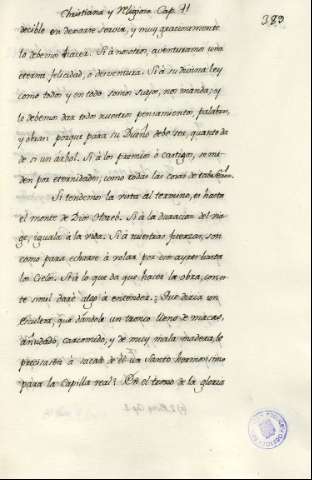 Christiana y Religiosa Cap. 11
383
decible en dexarte servir, y muy graciosamente
lo debemos hacer. Si à nosotros, aventuramos una
eterna felicidad, ò desventura. Si à su divina ley
como todos y en todo somos suyos, nos manda, y
lo debemos dar todos nuestros pensamientos, palabras,
y obras porque para su Dueño debe ser, quanto da
de si un arbol. Si à los premios ò castigos, se mi-
den por eternidades, como todas las cosas de
Si tendemos la vista al termino, es hasta
el monte de Dios Oreb. Si à la duracion del via-
ge, iguala à la vida. Si à nuestras fuerzas, son
como para echarse à volar por esos ayres hasta
los Cielos. Si à lo que da que hacer la obra, con es-
te simil daré algo à entender. ¿Que diria un
Escultor, que dandole un tronco lleno de macas,
añudado, carcomido, y de muy mala madera, le
precisasen à sacar de él un Santo hermosisimo
para la Capilla real? En el terno de la gloria